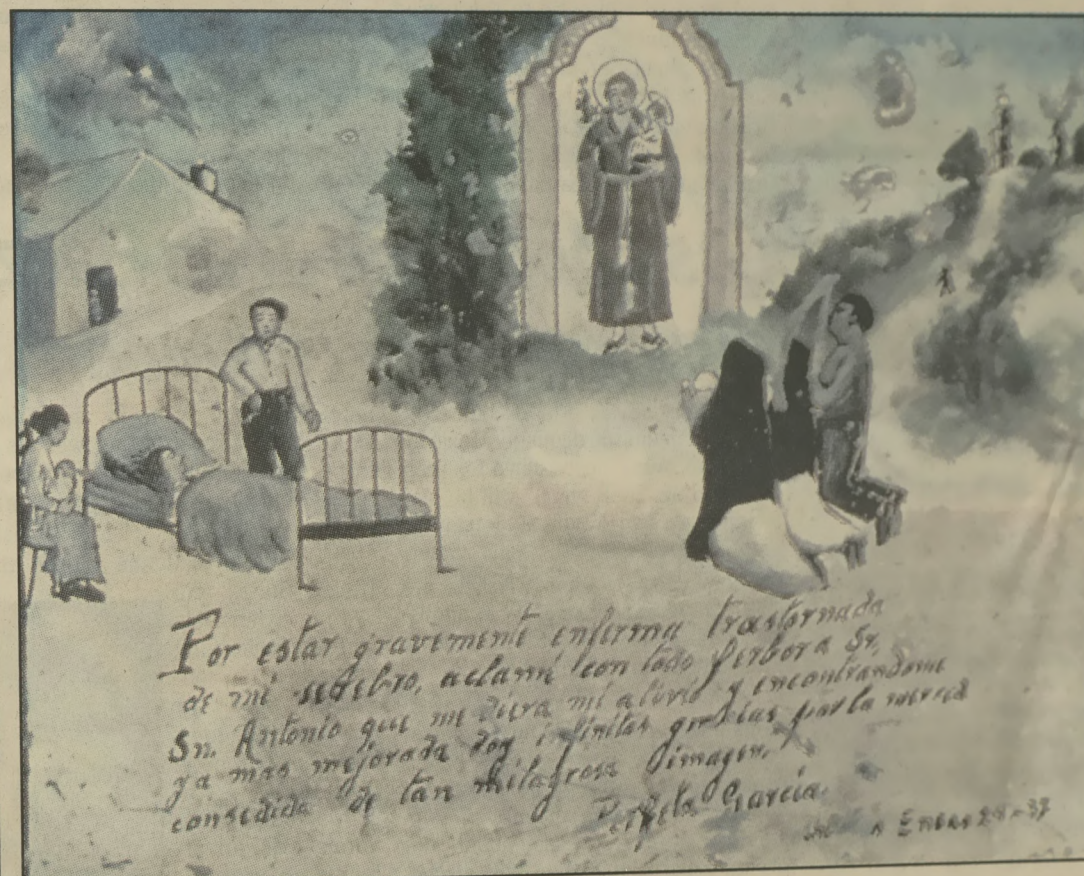 Por estar gravemente enferma trastornada
de mi selebro, aclamé con todo ferbor a Sr.
Sn. Antonio que me diera mi alivio y encontrandome
ya mas mejorada doy infinitas gracias por la merced
consedida de tan milagrosa imagen.
García.
Enero 28-37